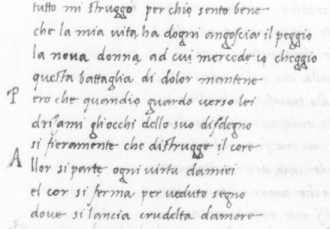 tutto mi struggo per chio sento bene
che la mia vita ha dogni angoscia il peggio
la nova donna ad cui mercede io cheggio
questa battaglia di dolor mantene
Pero che quandio guardo verso lei
drizami gliocchi dello suo disdegno
si fieramente che distrugge il core
Allor si parte ogni virtu damiei
el cor si ferma per veduto segno
dove si lancia crudelta damore